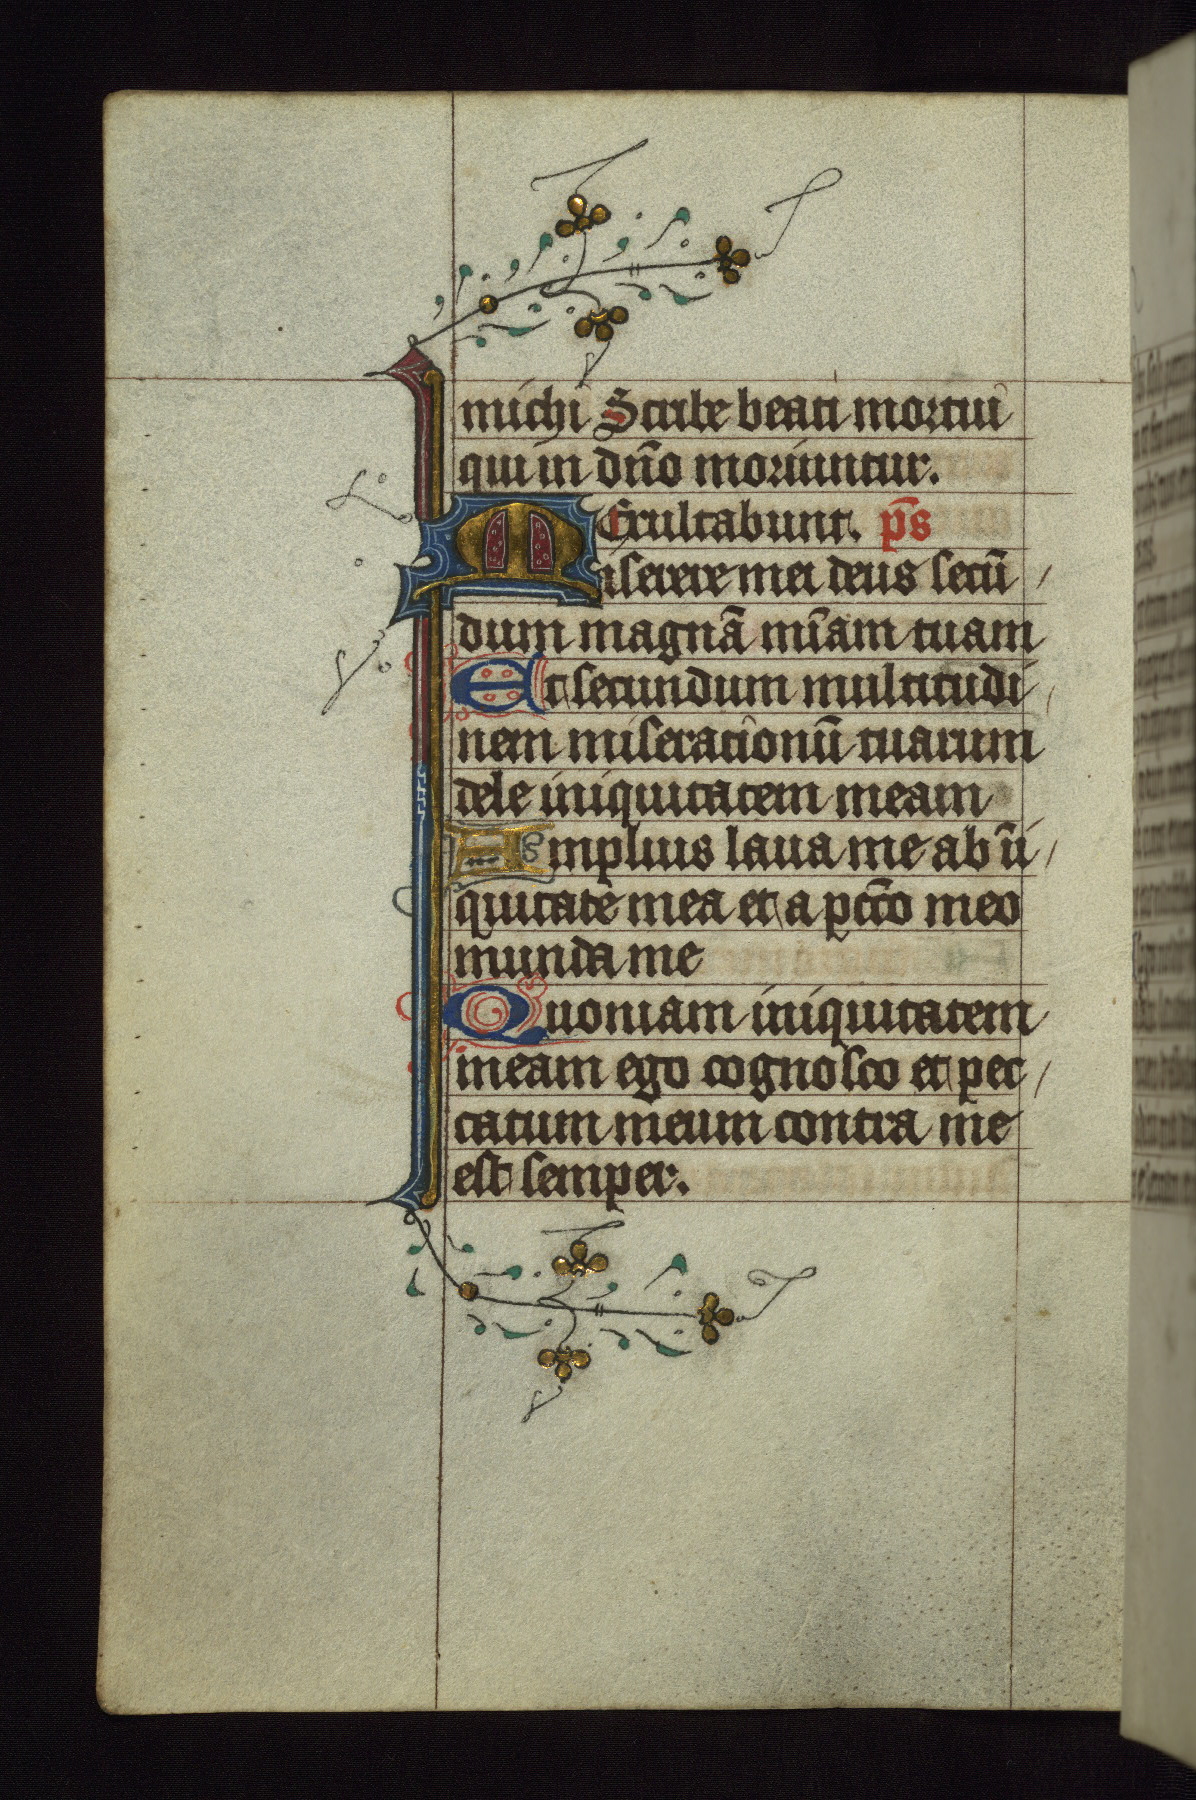 michi Scribe beati mortui
qui in dn̄o moriuntur.
Exultabunt. p̄s
Miserere mei deus secū
dum magnā mīam tuam
Et secundum multitudi
nem miserationū tuarum
dele iniquitatem meam
Amplius laua me ab īi
quitate mea et a pctō meo
munda me
Quoniam iniquitatem
meam ego cognosco et pec
catum meum contra me
est semper.